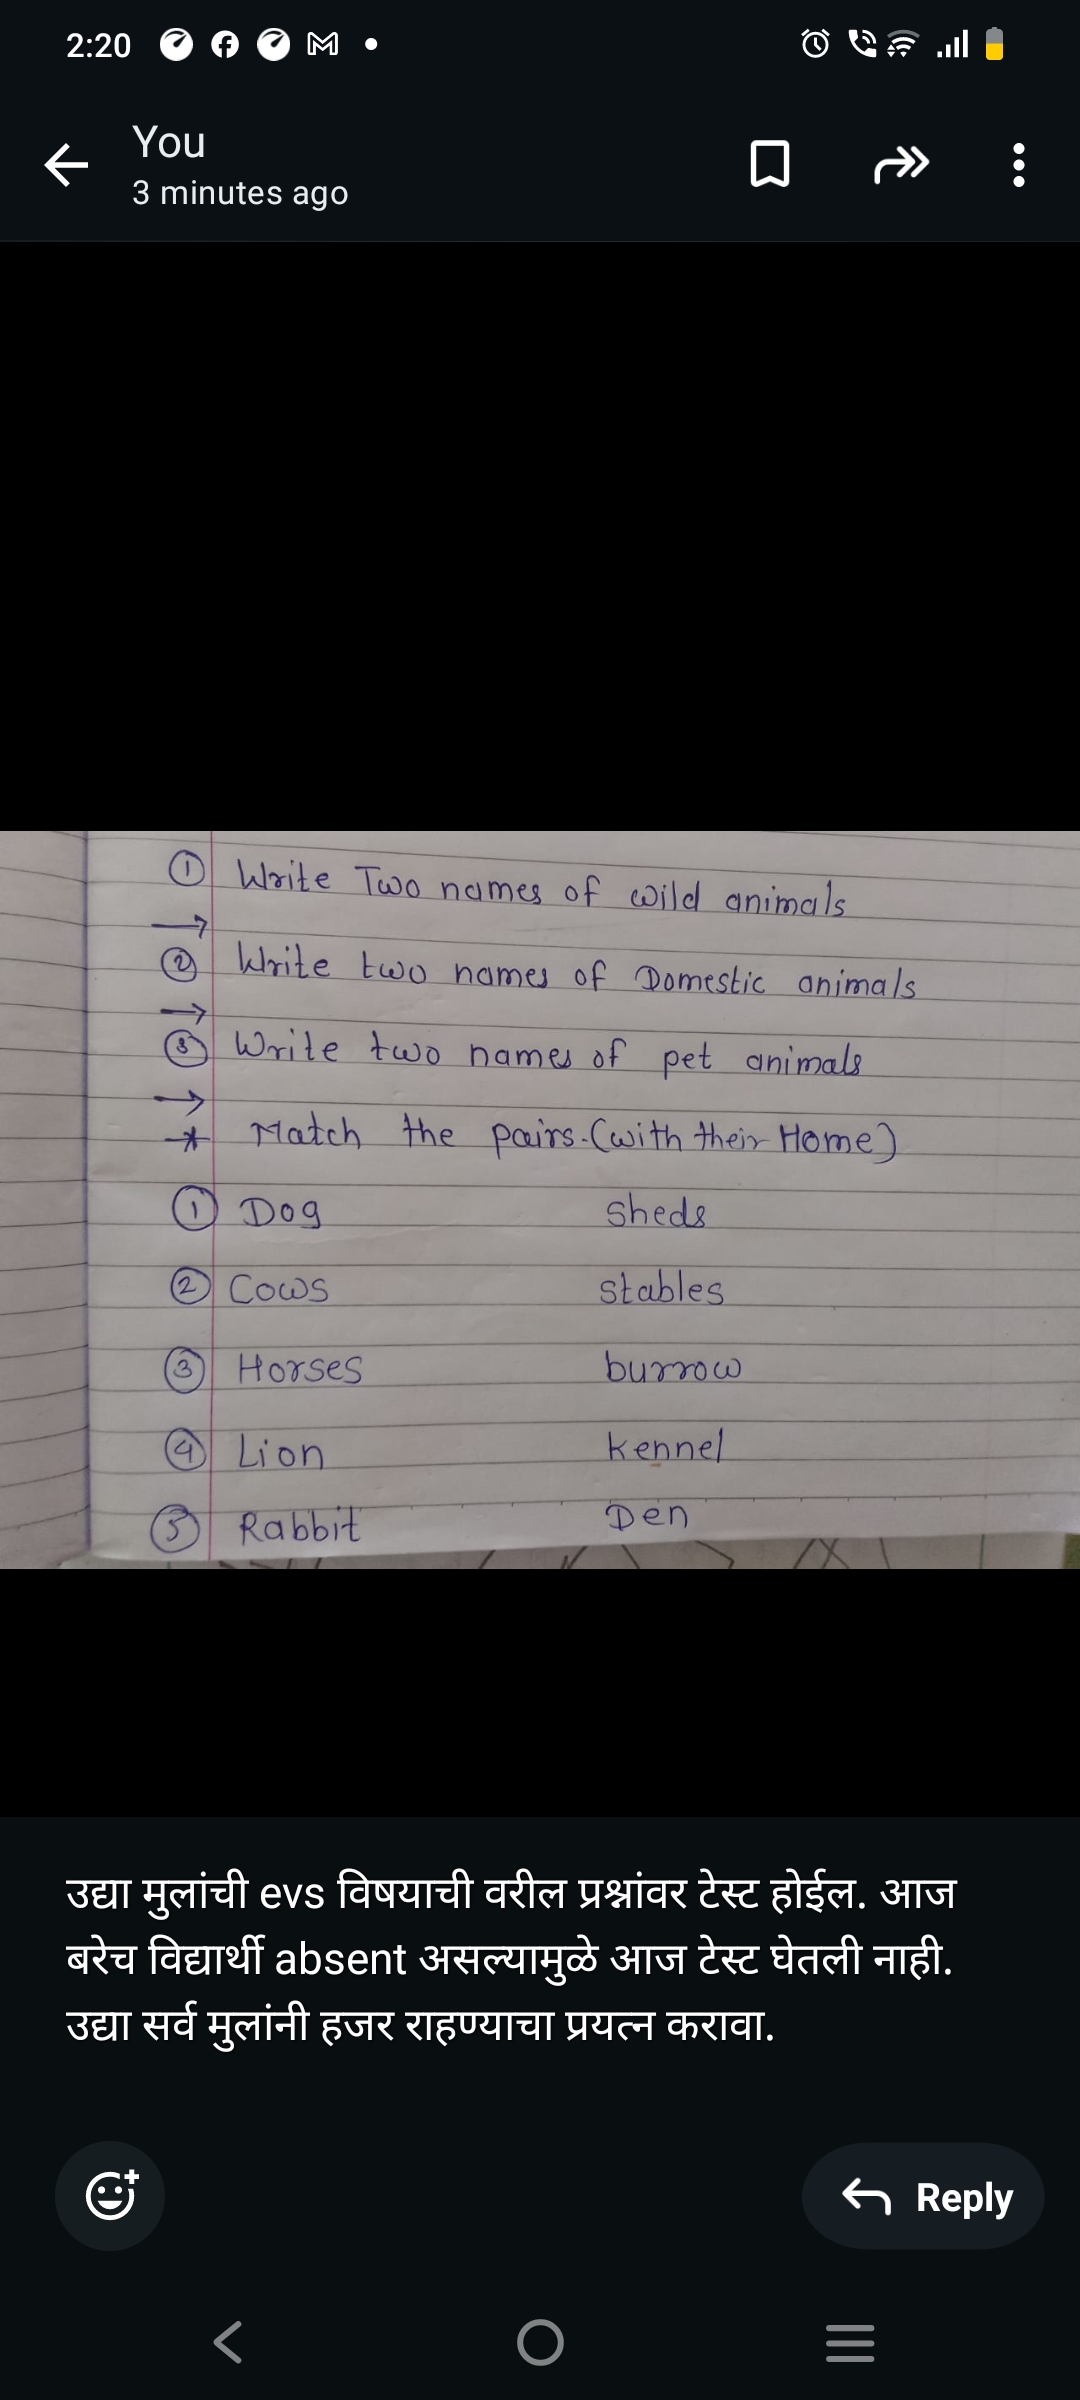 2:20
You
3 minutes ago
① Write Two names of wild animals
→
② Write two names of Domestic animals
→
③ Write two names of pet animals
→
* Match the pairs.(with their Home)
① Dog sheds
② Cows stables
③ Horses burrow
④ Lion kennel
⑤ Rabbit Den
उद्या मुलांची evs विषयाची वरील प्रश्नांवर टेस्ट होईल. आज
बरेच विद्यार्थी absent असल्यामुळे आज टेस्ट घेतली नाही.
उद्या सर्व मुलांनी हजर राहण्याचा प्रयत्न करावा.
Reply